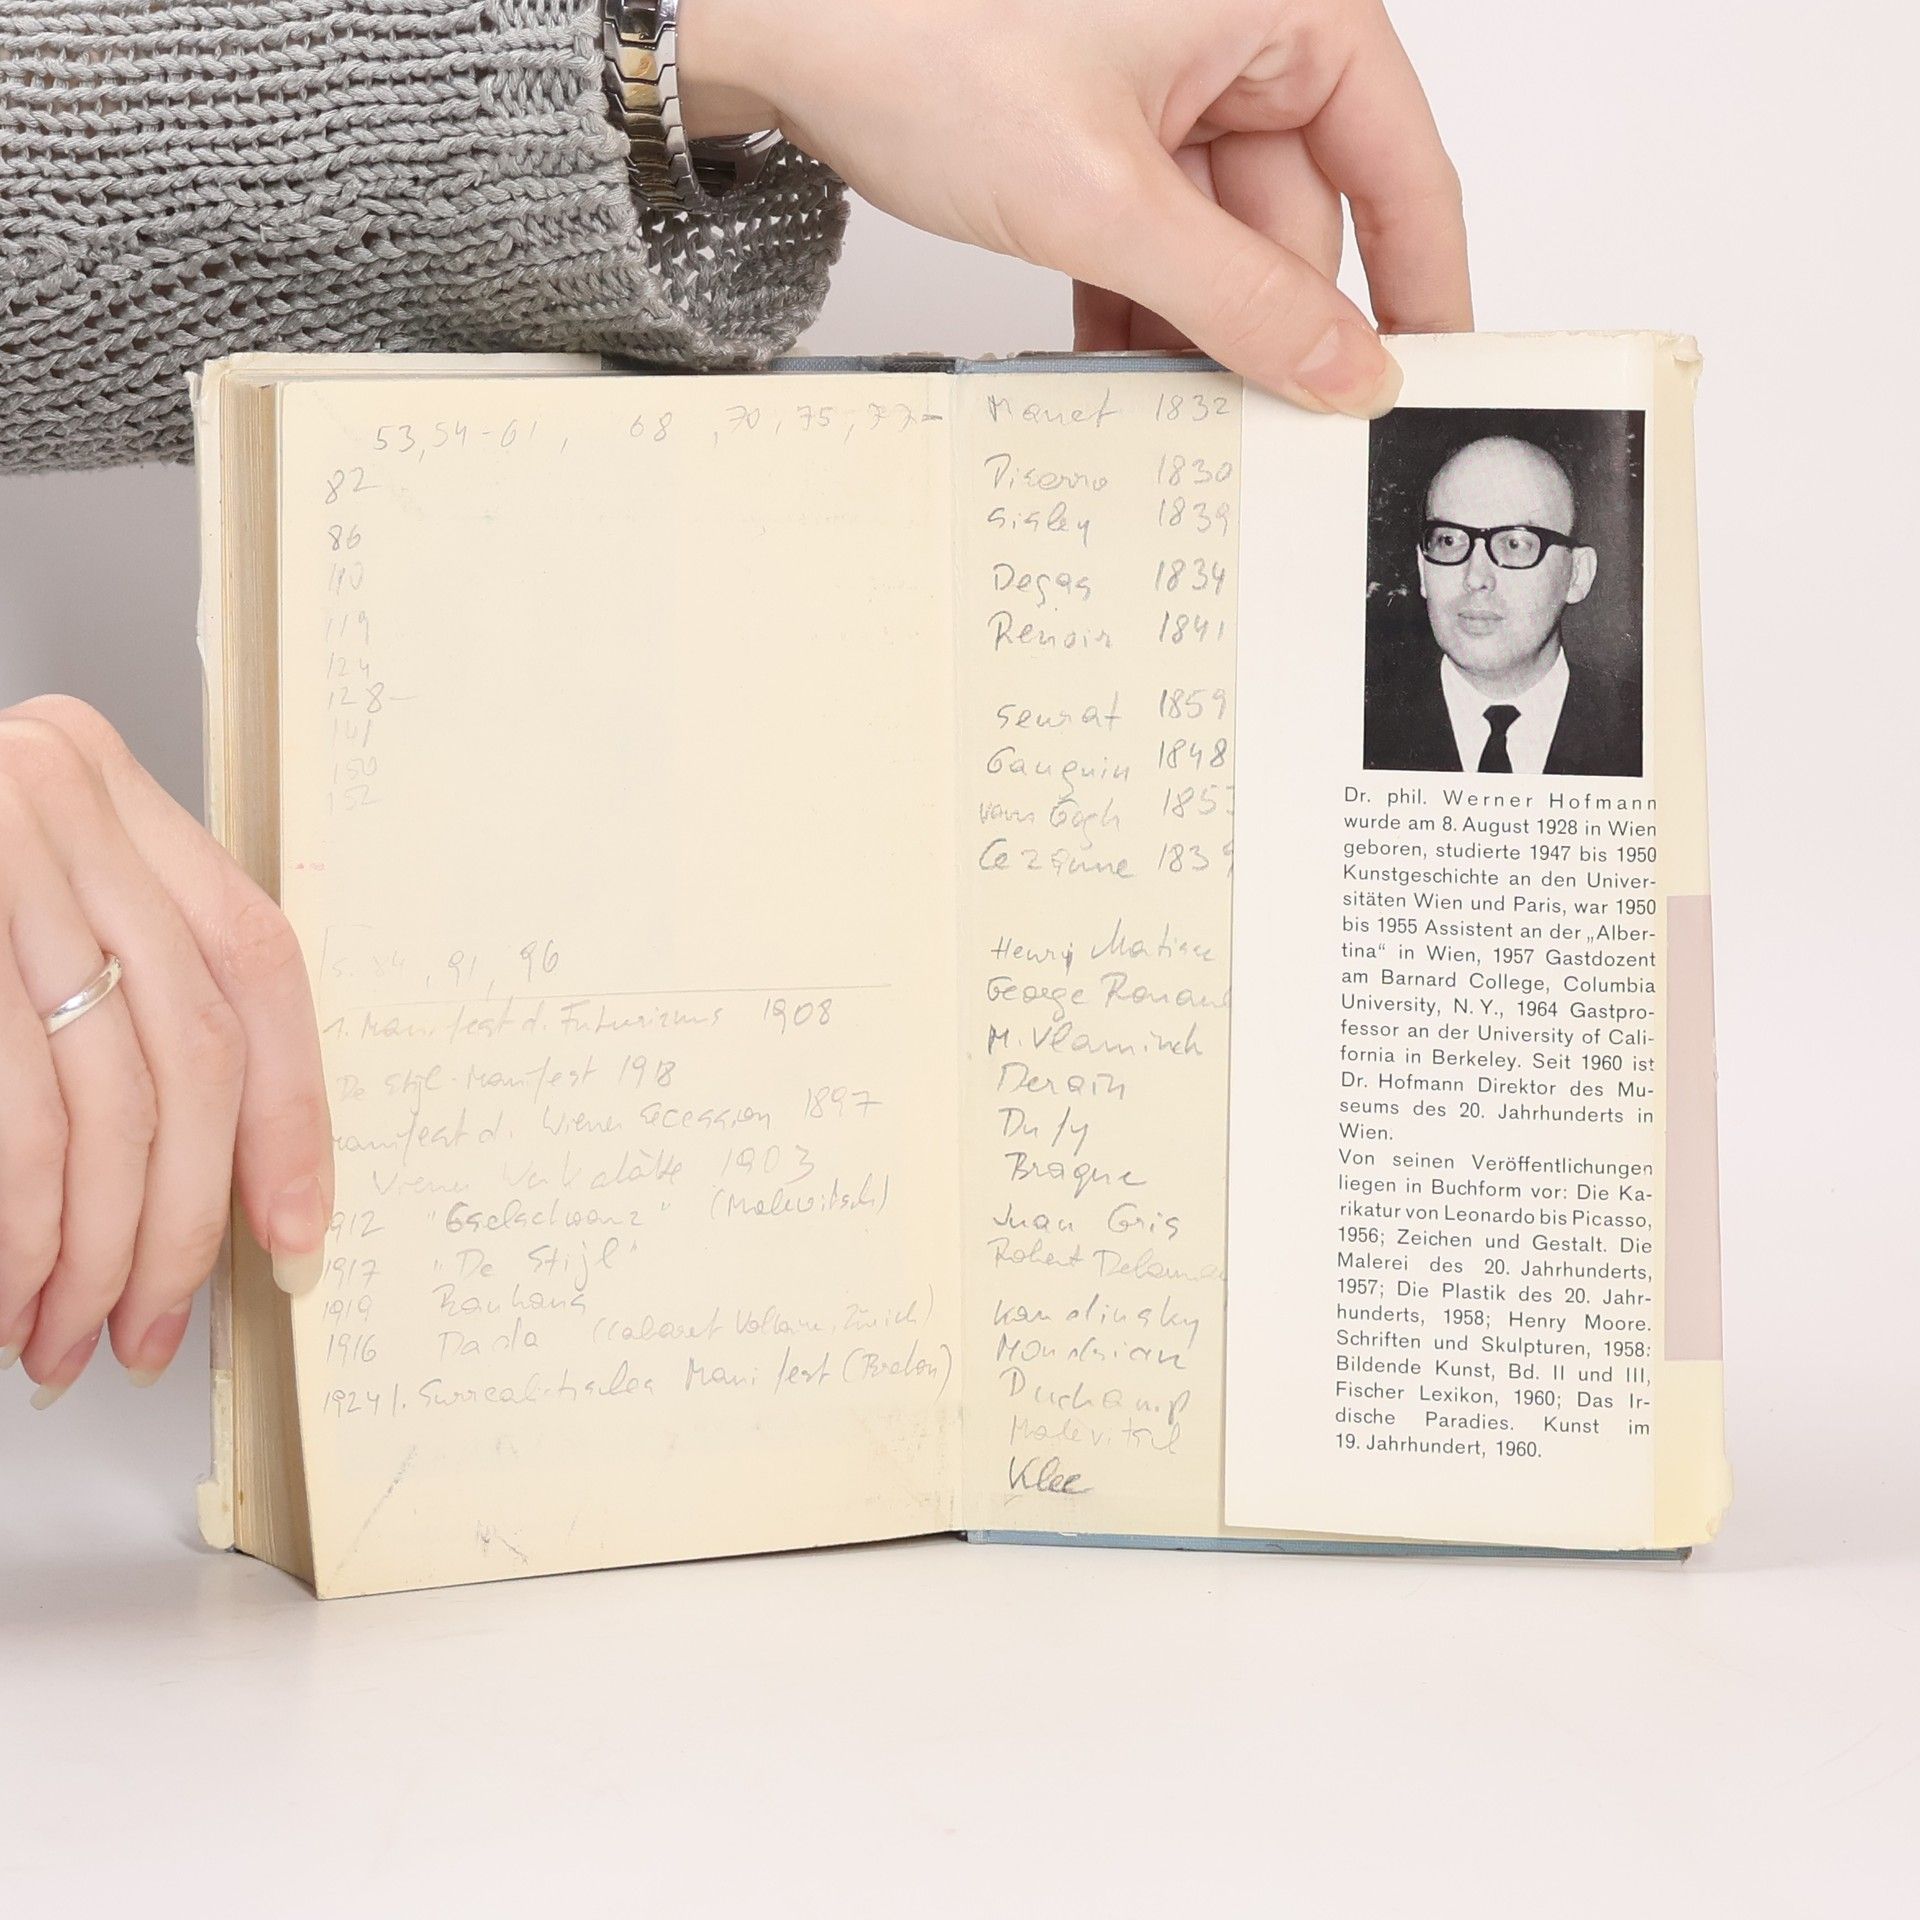 53, 54-61, 68, 70, 75, 77-
82
86
110
119
124
128-
141
150
152
S. 84, 91, 96
1. Manifest d. Futurismus 1908
De Stijl-Manifest 1918
Manifest d. Wiener Secession 1897
Wiener Werkstätte 1903
1912 "Eselschwanz" (Malevitsch)
1917 "De Stijl"
1919 Bauhaus
1916 Dada (Cabaret Voltaire, Zürich)
1924 1. Surrealistisches Manifest (Breton)
Manet 1832
Pisarro 1830
Sisley 1839
Degas 1834
Renoir 1841
Seurat 1859
Gauguin 1848
van Gogh 1853
Cezanne 1839
Henry Matisse
George Rouaul
M. Vlaminck
Derain
Dufy
Braque
Juan Gris
Robert Delaunay
Kandinsky
Mondrian
Duchamp
Malevitsch
Klee
Dr. phil. Werner Hofmann
wurde am 8. August 1928 in Wien
geboren, studierte 1947 bis 1950
Kunstgeschichte an den Univer-
sitäten Wien und Paris, war 1950
bis 1955 Assistent an der „Alber-
tina“ in Wien, 1957 Gastdozent
am Barnard College, Columbia
University, N. Y., 1964 Gastpro-
fessor an der University of Cali-
fornia in Berkeley. Seit 1960 ist
Dr. Hofmann Direktor des Mu-
seums des 20. Jahrhunderts in
Wien.
Von seinen Veröffentlichungen
liegen in Buchform vor: Die Ka-
rikatur von Leonardo bis Picasso,
1956; Zeichen und Gestalt. Die
Malerei des 20. Jahrhunderts,
1957; Die Plastik des 20. Jahr-
hunderts, 1958; Henry Moore.
Schriften und Skulpturen, 1958:
Bildende Kunst, Bd. II und III,
Fischer Lexikon, 1960; Das Ir-
dische Paradies. Kunst im
19. Jahrhundert, 1960.